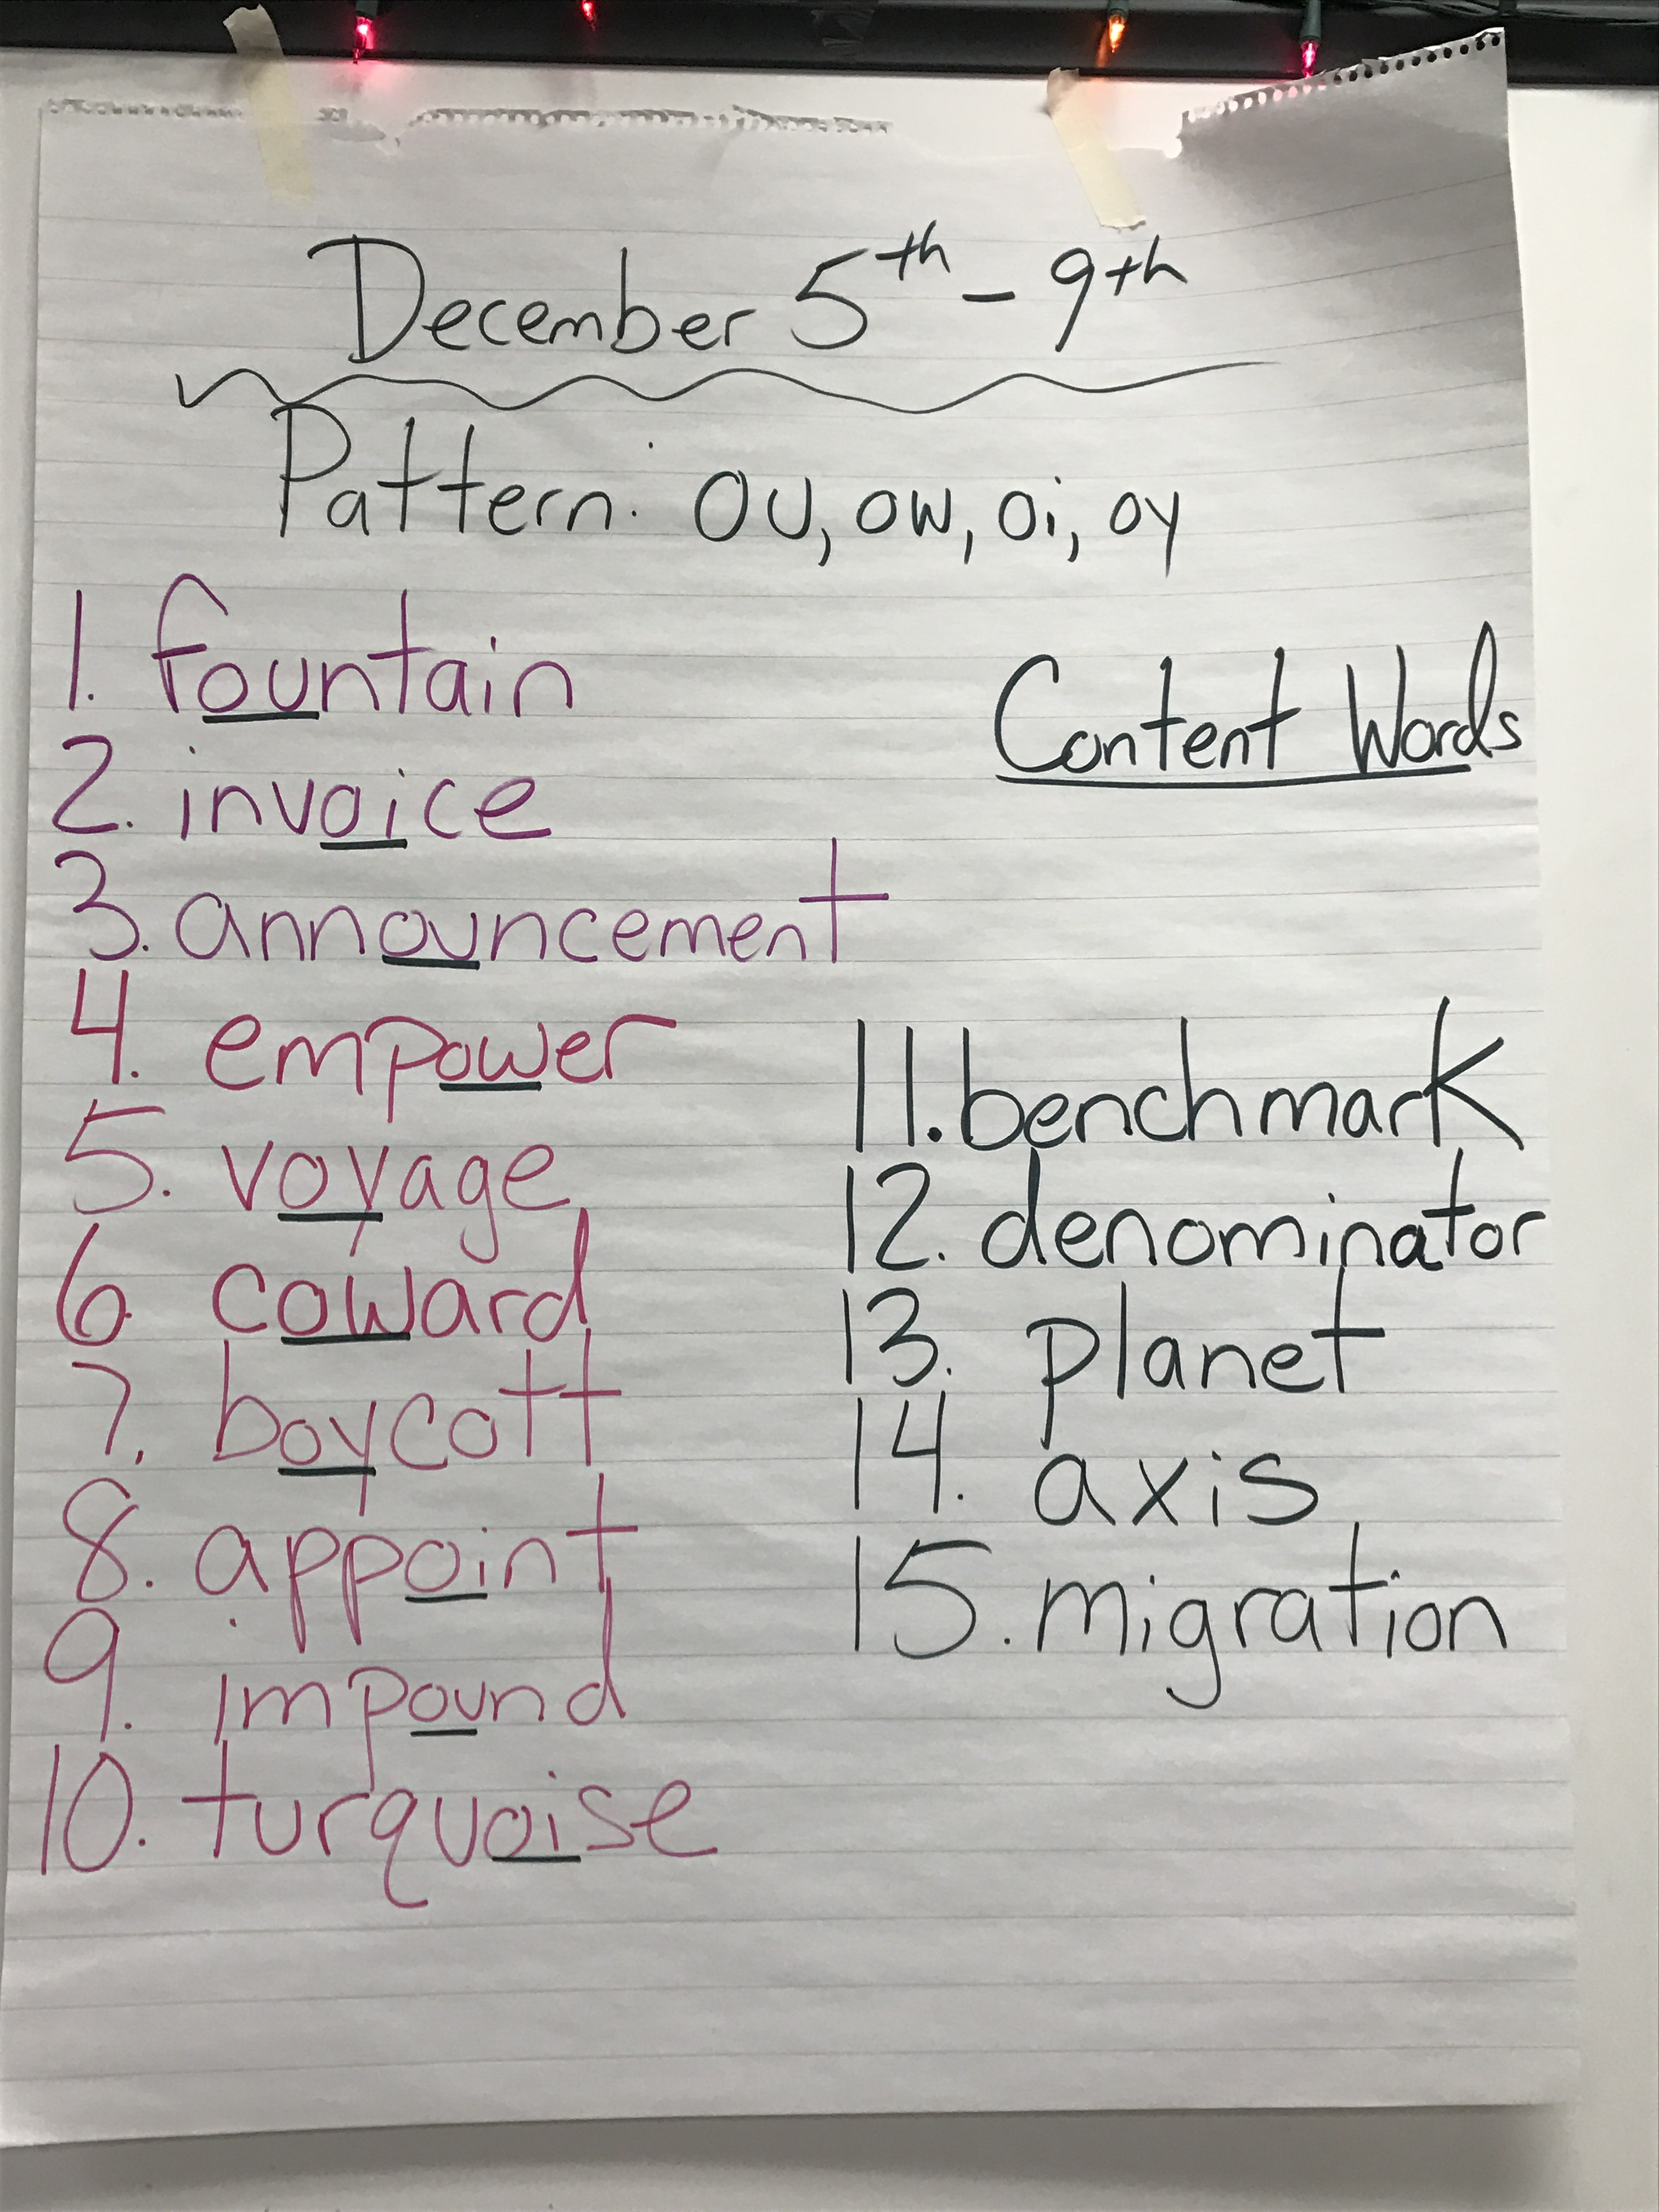 December 5th - 9th
Pattern: ou, ow, oi, oy
1. fountain
2. invoice
3. announcement
4. empower
5. voyage
6. coward
7. boycott
8. appoint
9. impound
10. turquoise
Content Words
11. benchmark
12. denominator
13. planet
14. axis
15. migration